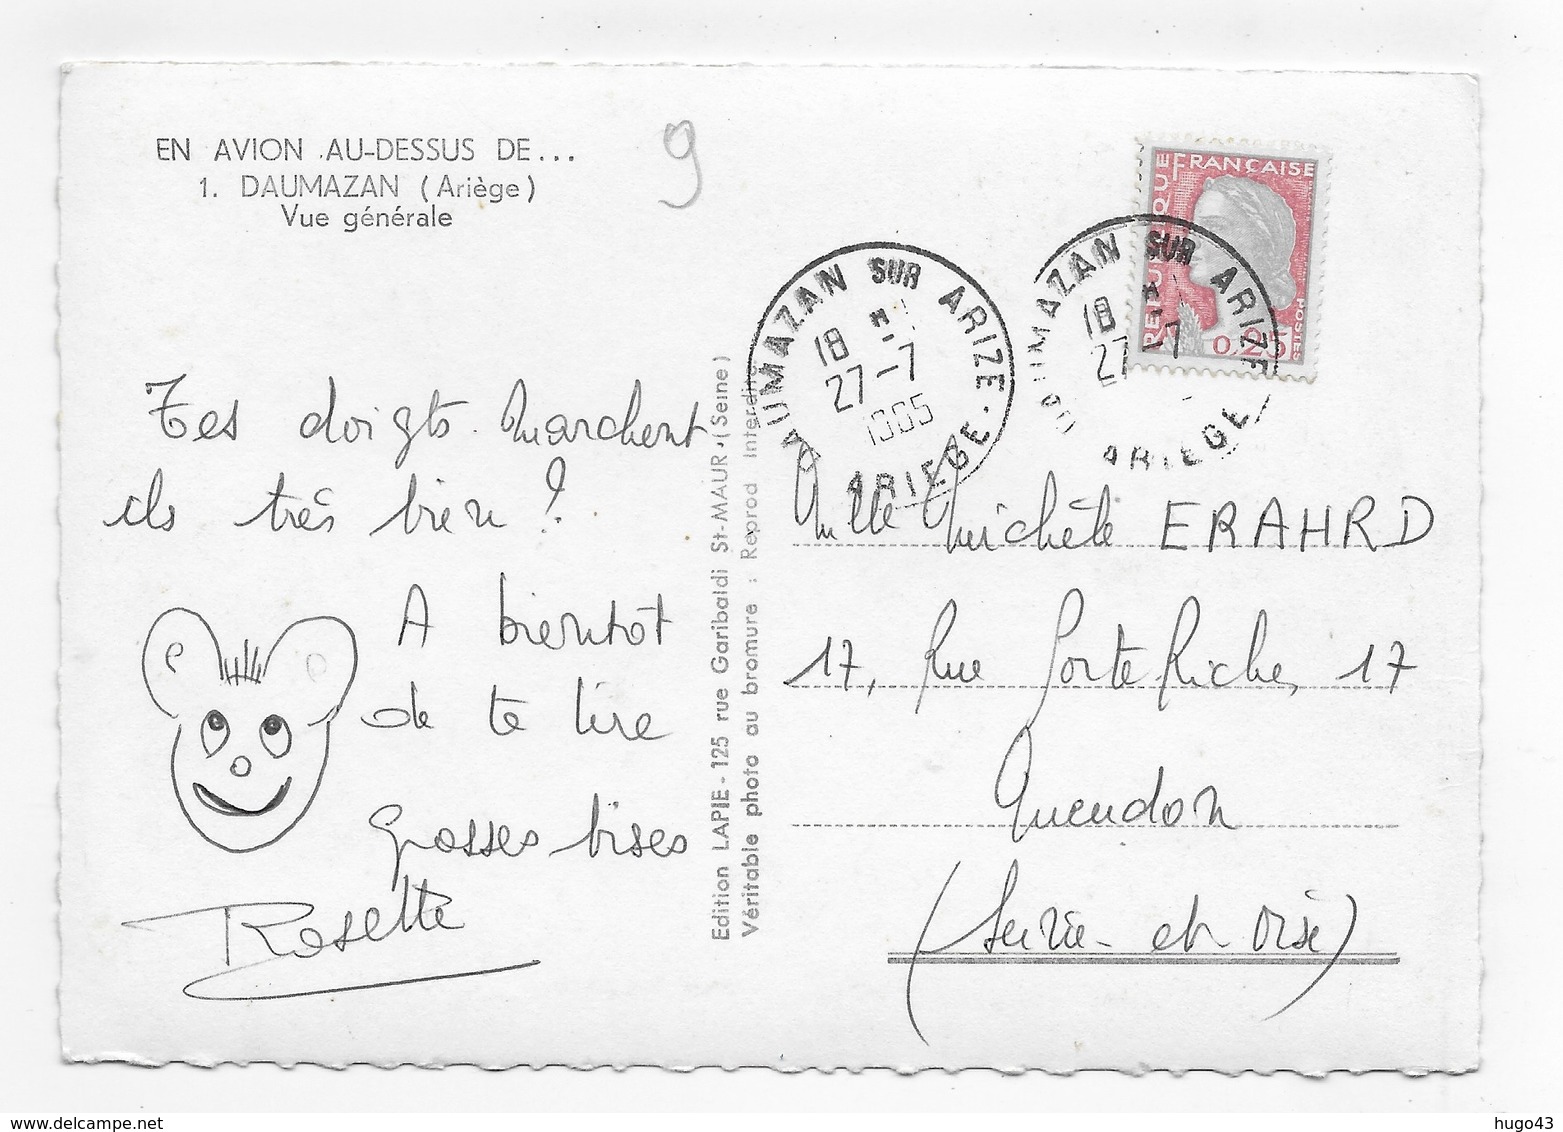 EN AVION AU-DESSUS DE...
1. DAUMAZAN (Ariège)
Vue générale
9
Tes doigts marchent
ils très bien ?
A bientôt
de te lire
Grosses bises
Rosette
Edition LAPIE - 125 rue Garibaldi St-MAUR (Seine)
Véritable photo au bromure : Reprod Interdite
RÉPUBLIQUE FRANÇAISE
0,25
POSTES
DAUMAZAN SUR ARIZE
18 H
27-7
1965
ARIEGE
DAUMAZAN SUR ARIZE
18 H
27-7
ARIEGE
Mlle Michèle ERAHRD
17, Rue Porte Riche, 17
Meudon
(Seine-et-Oise)
www.delcampe.net
hugo43